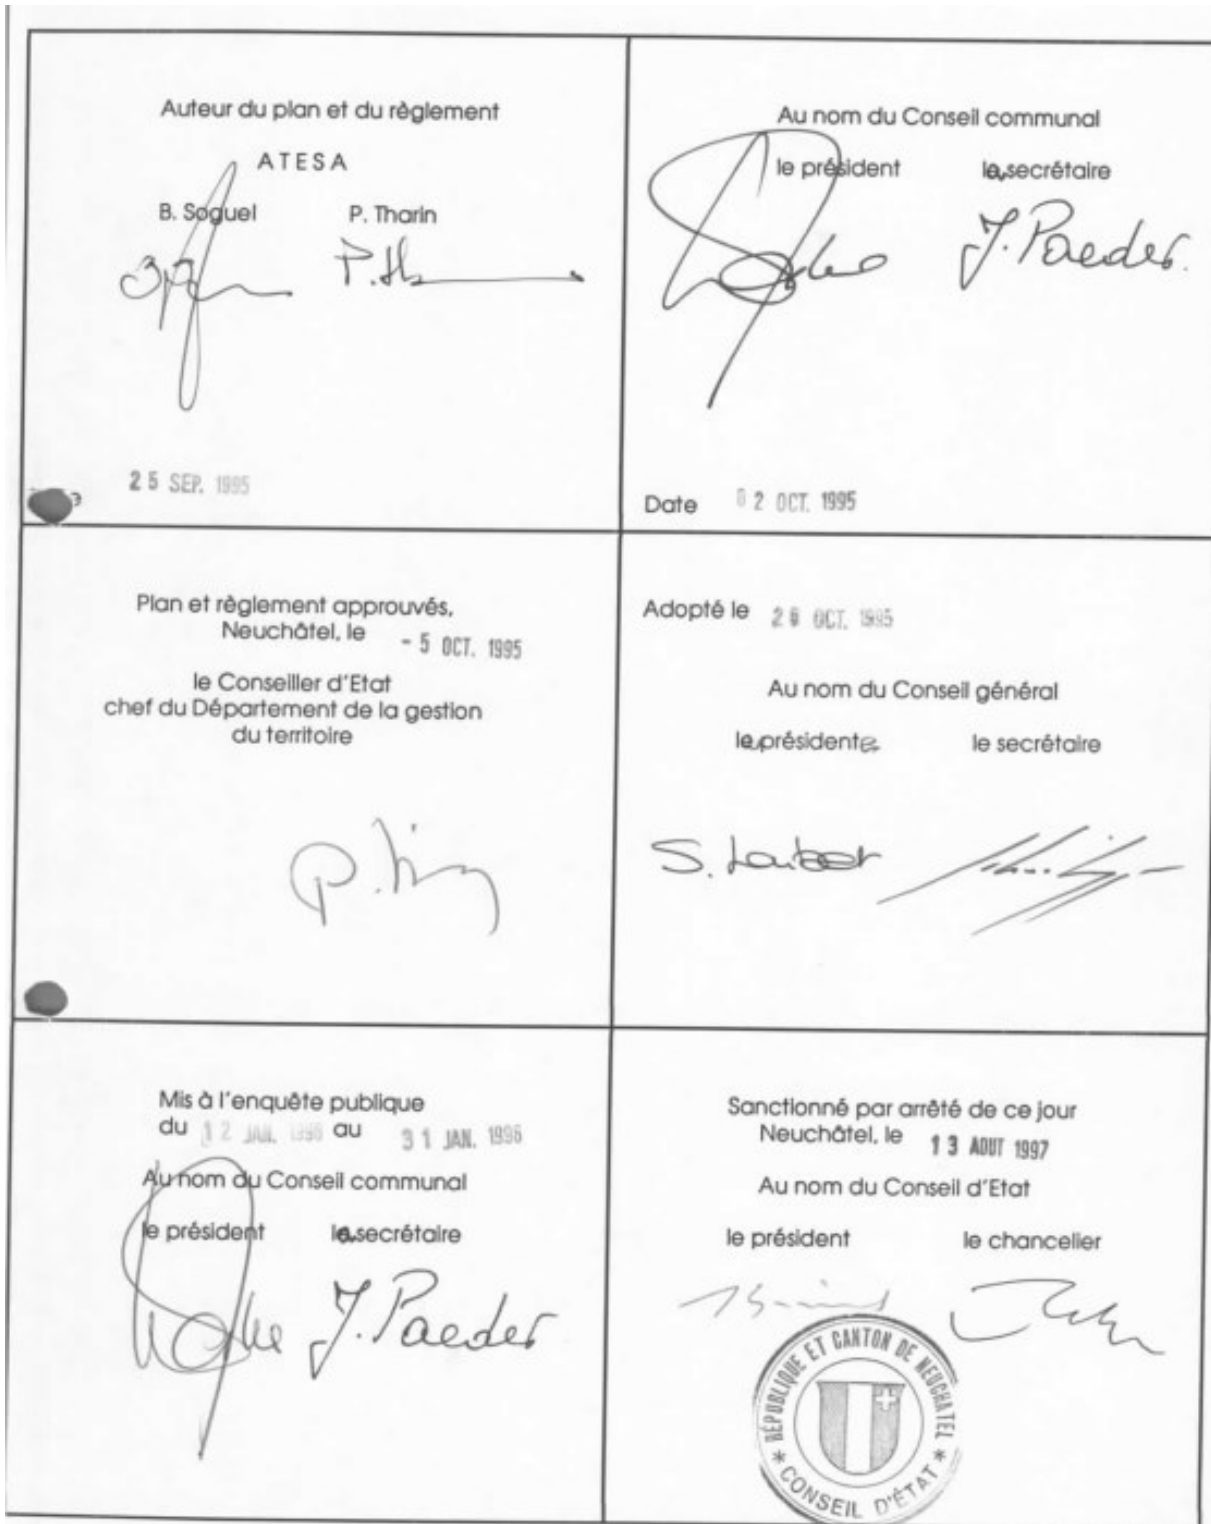 Auteur du plan et du règlement
ATESA
B. Soguel P. Tharin
25 SEP. 1995
Au nom du Conseil communal
le président la secrétaire
J. Paeder.
Date 02 OCT. 1995
Plan et règlement approuvés,
Neuchâtel, le - 5 OCT. 1995
le Conseiller d'Etat
chef du Département de la gestion
du territoire
Adopté le OCT. 1995
Au nom du Conseil général
la présidente le secrétaire
Mis à l'enquête publique
du 12 JAN. 1996 au 31 JAN. 1996
Au nom du Conseil communal
le président la secrétaire
J. Paeder
Sanctionné par arrêté de ce jour
Neuchâtel, le 13 AOUT 1997
Au nom du Conseil d'Etat
le président le chancelier
RÉPUBLIQUE ET CANTON DE NEUCHATEL
* CONSEIL D'ÉTAT *